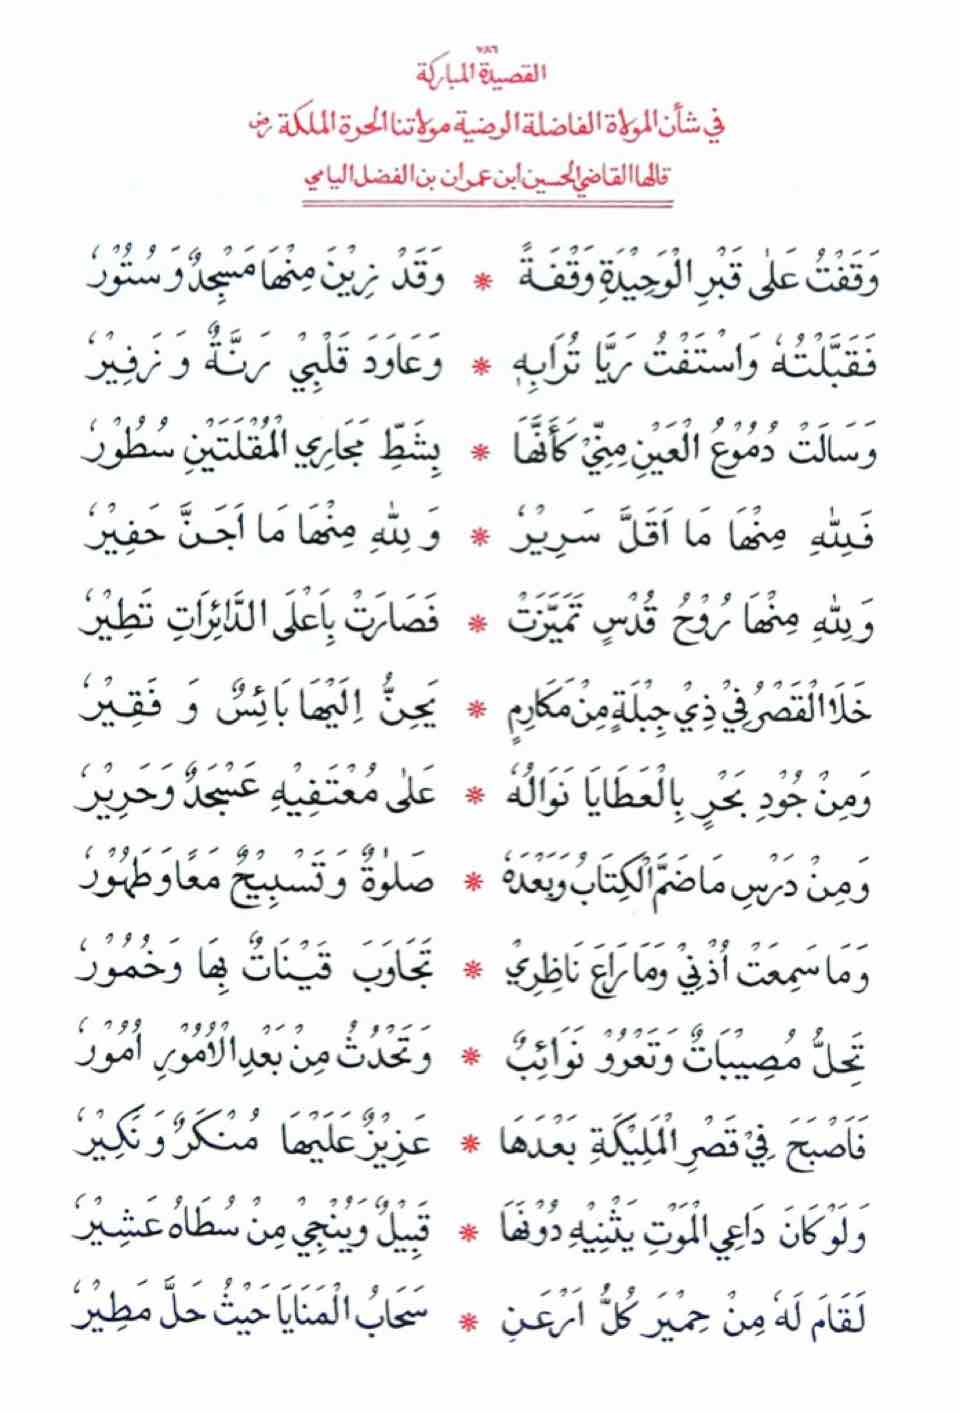 ٧٨٦
القصيدة المباركة
في شأن المولاة الفاضلة الرضية مولاتنا الحرة الملكة رض
قالها القاضي الحسين ابن عمران بن الفضل اليامي
وَقَفْتُ عَلٰى قَبْرِ الْوَحِيْدَةِ وَقْفَةً * وَقَدْ زِيْنَ مِنْهَا مَسْجِدٌ وَسُتُوْرٗ
فَقَبَّلْتُهٗ وَاسْتَفْتُ رَيَّا تُرَابِهٖ * وَعَاوَدَ قَلْبِيْ رَنَّةٌ وَزَفِيْرٗ
وَسَالَتْ دُمُوْعُ الْعَيْنِ مِنِّيْ كَأَنَّهَا * بِشَطِّ مَجَارِي الْمُقْلَتَيْنِ سُطُوْرٗ
فَلِلّٰهِ مِنْهَا مَا اَقَلَّ سَرِيْرٗ * وَلِلّٰهِ مِنْهَا مَا اَجَنَّ حَفِيْرٗ
وَلِلّٰهِ مِنْهَا رُوْحُ قُدْسٍ تَمَيَّزَتْ * فَصَارَتْ بِاَعْلَى الدَّائِرَاتِ تَطِيْرٗ
خَلَا الْقَصْرُ فِيْ ذِيْ جِبْلَةٍ مِنْ مَكَارِمٍ * يَحِنُّ اِلَيْهَا بَائِسٌ وَفَقِيْرٗ
وَمِنْ جُوْدِ بَحْرٍ بِالْعَطَايَا نَوَالُهٗ * عَلٰى مُعْتَفِيْهِ عَسْجَدٌ وَحَرِيْرٗ
وَمِنْ دَرْسِ مَا ضَمَّ الْكِتَابُ وَبَعْدَهٗ * صَلٰوةٌ وَتَسْبِيْحٌ مَعًا وَطَهُوْرٗ
وَمَا سَمِعَتْ اُذْنِيْ وَمَا رَاعَ نَاظِرِيْ * تَجَاوَبَ قَيْنَاتٌ بِهَا وَخُمُوْرٗ
تَحِلُّ مُصِيْبَاتٌ وَتَعْرُوْ نَوَائِبٌ * وَتَحْدُثُ مِنْ بَعْدِ الْاُمُوْرِ اُمُوْرٗ
فَاَصْبَحَ فِيْ قَصْرِ الْمَلِيْكَةِ بَعْدَهَا * عَزِيْزٌ عَلَيْهَا مُنْكَرٌ وَنَكِيْرٗ
وَلَوْ كَانَ دَاعِي الْمَوْتِ يَثْنِيْهِ دُوْنَهَا * قَبِيْلٌ وَيُنْجِيْ مِنْ سُطَاهُ عَشِيْرٗ
لَقَامَ لَهٗ مِنْ حِمْيَرَ كُلُّ اَرْعَنِ * سَحَابُ الْمَنَايَا حَيْثُ حَلَّ مَطِيْرٗ